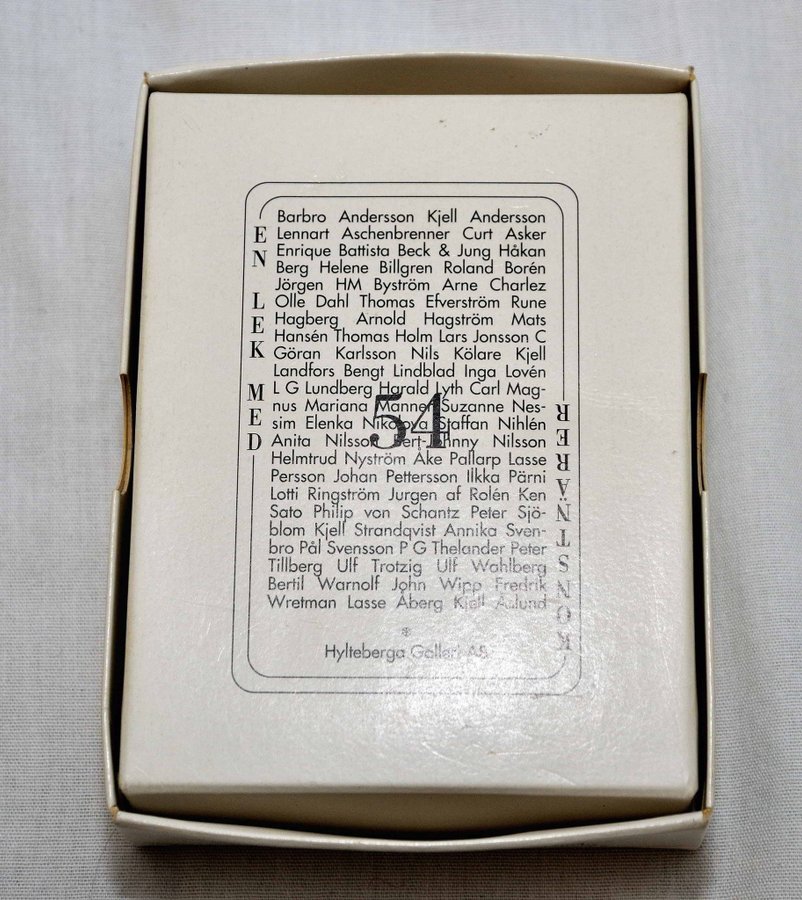 EN LEK MED
Barbro Andersson Kjell Andersson
Lennart Aschenbrenner Curt Asker
Enrique Battista Beck & Jung Håkan
Berg Helene Billgren Roland Borén
Jörgen HM Byström Arne Charlez
Olle Dahl Thomas Efverström Rune
Hagberg Arnold Hagström Mats
Hansén Thomas Holm Lars Jonsson C
Göran Karlsson Nils Kölare Kjell
Landfors Bengt Lindblad Inga Lovén
L G Lundberg Harald Lyth Carl Mag-
nus Mariana Manner Suzanne Nes-
54
sim Elenka Nikolova Staffan Nihlén
Anita Nilsson Bert-Johnny Nilsson
Helmtrud Nyström Åke Pallarp Lasse
Persson Johan Pettersson Ilkka Pärni
Lotti Ringström Jurgen af Rolén Ken
Sato Philip von Schantz Peter Sjö-
blom Kjell Strandqvist Annika Sven-
bro Pål Svensson P G Thelander Peter
Tillberg Ulf Trotzig Ulf Wahlberg
Bertil Warnolf John Wipp Fredrik
Wretman Lasse Åberg Kjell Åslund
*
Hylteberga Galleri AB
KONSTNÄRER